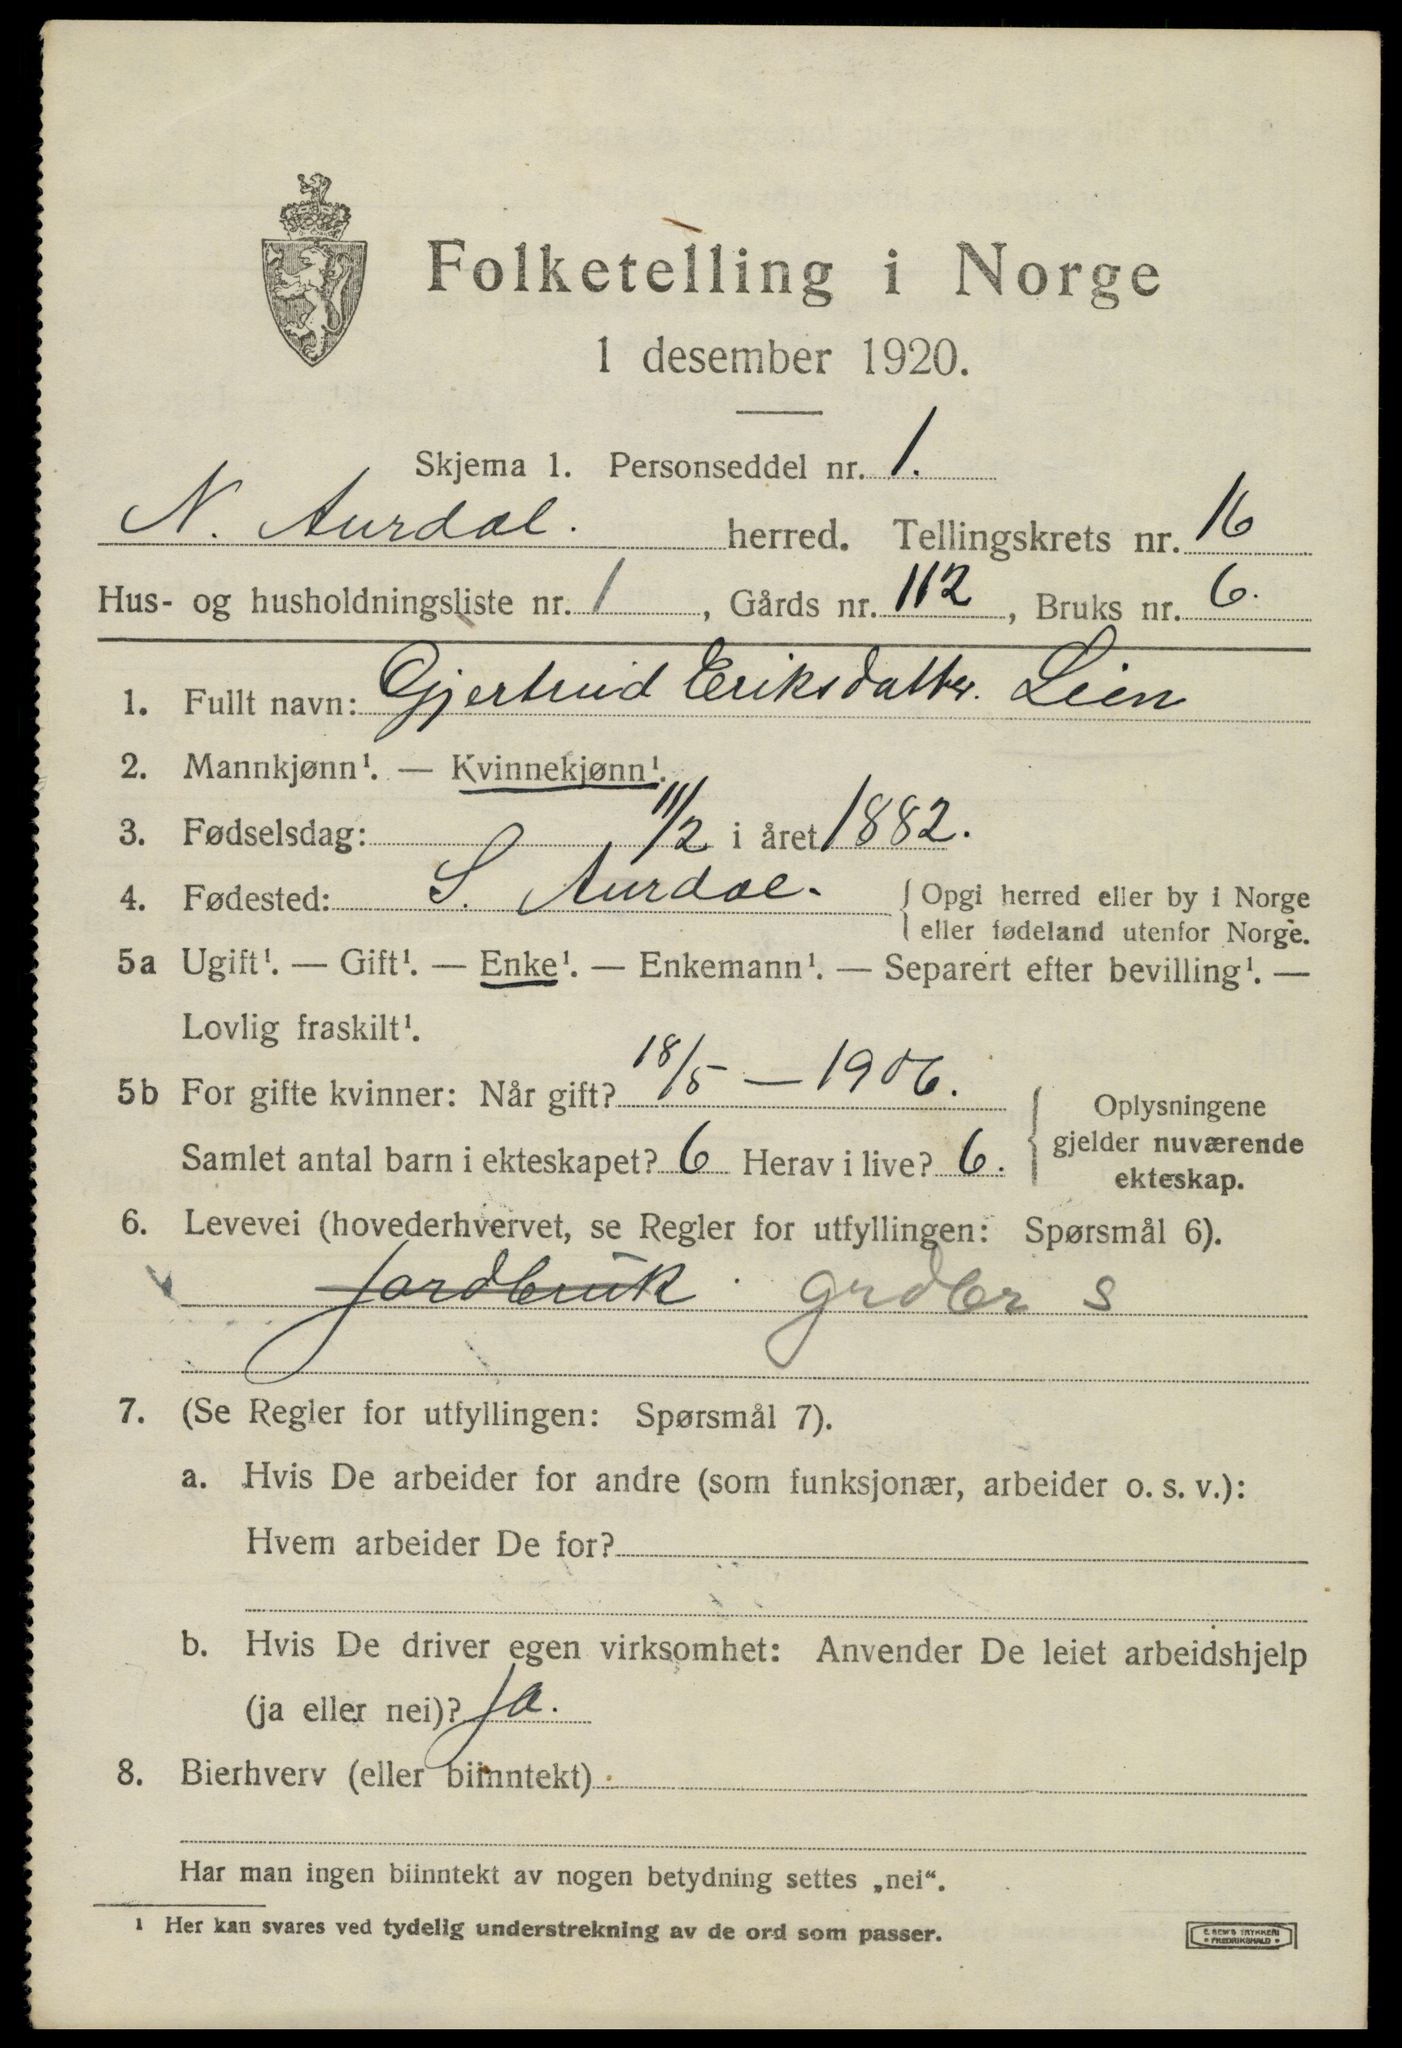 Folketelling i Norge
1 desember 1920.
Skjema 1. Personseddel nr. 1.
N. Aurdal. herred. Tellingskrets nr. 16
Hus- og husholdningsliste nr. 1, Gårds nr. 112, Bruks nr. 6.
1. Fullt navn: Gjertrud Eriksdatter. Lien
2. Mannkjønn¹. — Kvinnekjønn¹.
3. Fødselsdag: 11/2 i året 1882.
4. Fødested: S. Aurdal. { Opgi herred eller by i Norge
eller fødeland utenfor Norge.
5a Ugift¹. — Gift¹. — Enke¹. — Enkemann¹. — Separert efter bevilling¹. —
Lovlig fraskilt¹.
5b For gifte kvinner: Når gift? 18/5 — 1906.
Samlet antal barn i ekteskapet? 6 Herav i live? 6.
{ Oplysningene
gjelder nuværende
ekteskap.
6. Levevei (hovederhvervet, se Regler for utfyllingen: Spørsmål 6).
Jordbruk. grdbr s
7. (Se Regler for utfyllingen: Spørsmål 7).
a. Hvis De arbeider for andre (som funksjonær, arbeider o. s. v.):
Hvem arbeider De for?
b. Hvis De driver egen virksomhet: Anvender De leiet arbeidshjelp
(ja eller nei)? Ja.
8. Bierhverv (eller biinntekt)
Har man ingen biinntekt av nogen betydning settes „nei“.
¹ Her kan svares ved tydelig understrekning av de ord som passer.
E. SEM'S TRYKKERI
• FREDRIKSHALD •